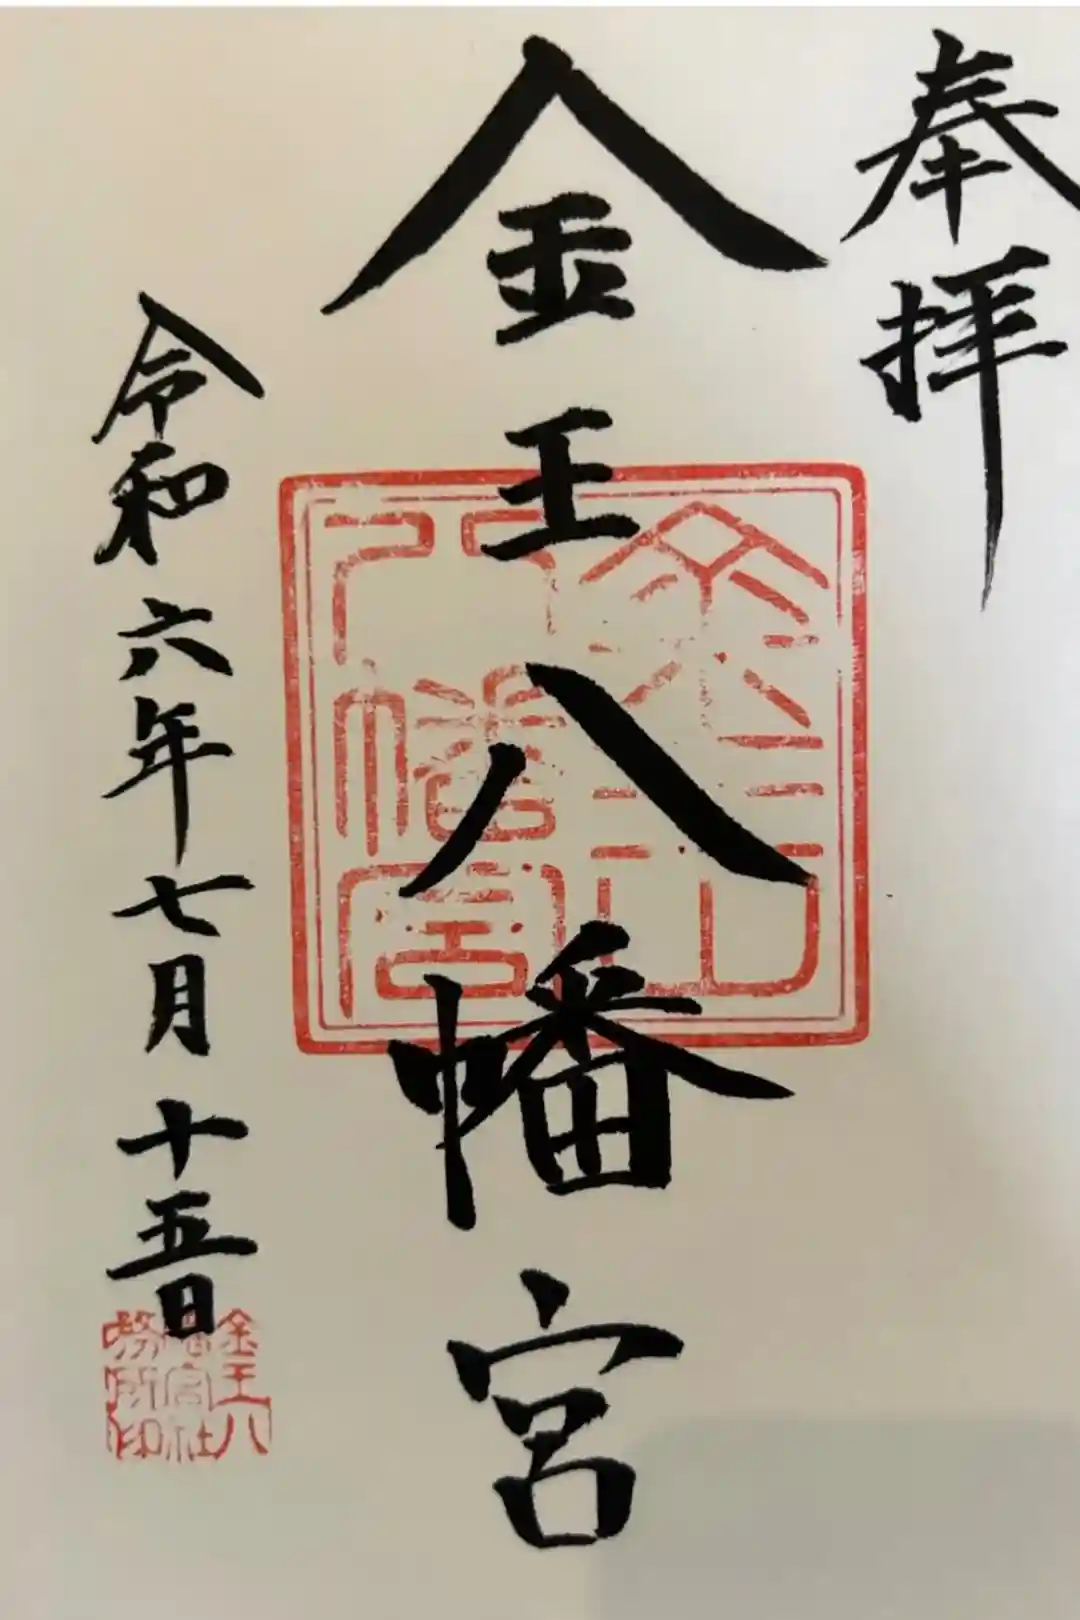 奉拝
金王八幡宮
令和六年七月十五日
金王八
幡宮社
務所印